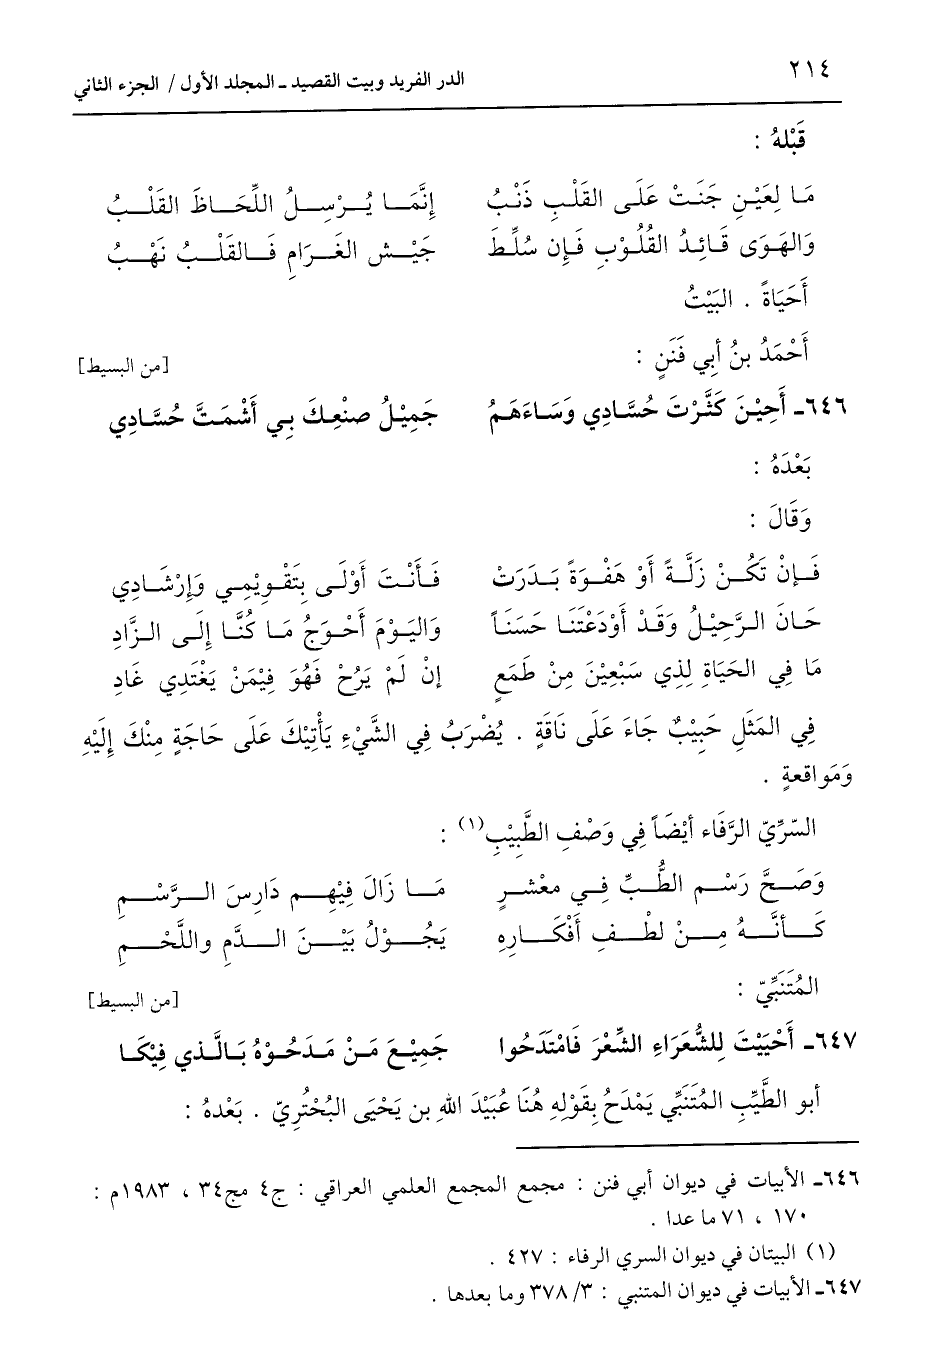 ٢١٤
الدر الفريد وبيت القصيد ـ المجلد الأول / الجزء الثاني
قَبْلهُ :
مَا لِعَيْنٍ جَنَتْ عَلَى القَلْبِ ذَنْبُ إنَّمَا يُرْسِلُ اللِّحَاظَ القَلْبُ
وَالهَوَى قَائِدُ القُلُوْبِ فَإن سُلِّطَ جَيْش الغَرَامِ فَالقَلْبُ نَهْبُ
أَحَيَاةً . البَيْتُ
أَحْمَدُ بنُ أبي فَنَنٍ :
[من البسيط]
٦٤٦ـ أَحِيْنَ كَثَّرْتَ حُسَّادِي وَسَاءَهَمُ جَمِيْلُ صنْعِكَ بِي أَشْمَتَّ حُسَّادِي
بَعْدَهُ :
وَقَالَ :
فَإنْ تَكُنْ زَلَّةً أَوْ هَفْوَةً بَدَرَتْ فَأَنْتَ أَوْلَى بِتَقْوِيْمِي وَإرْشَادِي
حَانَ الرَّحِيْلُ وَقَدْ أَوْدَعْتَنَا حَسَنَاً وَاليَوْمَ أَحْوَجُ مَا كُنَّا إلَى الزَّادِ
مَا فِي الحَيَاةِ لِذِي سَبْعِيْنَ مِنْ طَمَعٍ إنْ لَمْ يَرُحْ فَهُوَ فِيْمَنْ يَغْتَدِي غَادِ
فِي المَثَلِ حَبِيْبٌ جَاءَ عَلَى نَاقَةٍ . يُضْرَبُ فِي الشَّيْءِ يَأْتِيْكَ عَلَى حَاجَةٍ مِنْكَ إلَيْهِ
وَمَواقعةٍ .
السّرِّيّ الرَّفَاء أيْضَاً فِي وَصْفِ الطَّبِيْبِ(١) :
وَصَحَّ رَسْم الطُّبِّ فِي معْشرٍ مَا زَالَ فِيْهِم دَارِسَ الرَّسْمِ
كَأنَّهُ مِنْ لطْفِ أَفْكَارِهِ يَجُوْلُ بَيْنَ الدَّمِ واللَّحْمِ
المُتَنَبِّيّ :
[من البسيط]
٦٤٧ـ أَحْيَيْتَ لِلشُّعَرَاءِ الشِّعْرَ فَامْتَدَحُوا جَمِيْعَ مَنْ مَدَحُوْهُ بَالَّذي فِيْكَا
أبو الطَّيِّبِ المُتَنَبِّي يَمْدَحُ بِقَوْلِهِ هُنَا عُبَيْدَ اللهِ بن يَحْيَى البُحْتُرِيّ . بَعْدهُ :
٦٤٦ـ الأبيات في ديوان أبي فنن : مجمع المجمع العلمي العراقي : ج٤ مج٣٤ ، ١٩٨٣م :
١٧٠ ، ٧١ ما عدا .
(١) البيتان في ديوان السري الرفاء : ٤٢٧ .
٦٤٧ـ الأبيات في ديوان المتنبي : ٣/ ٣٧٨ وما بعدها .